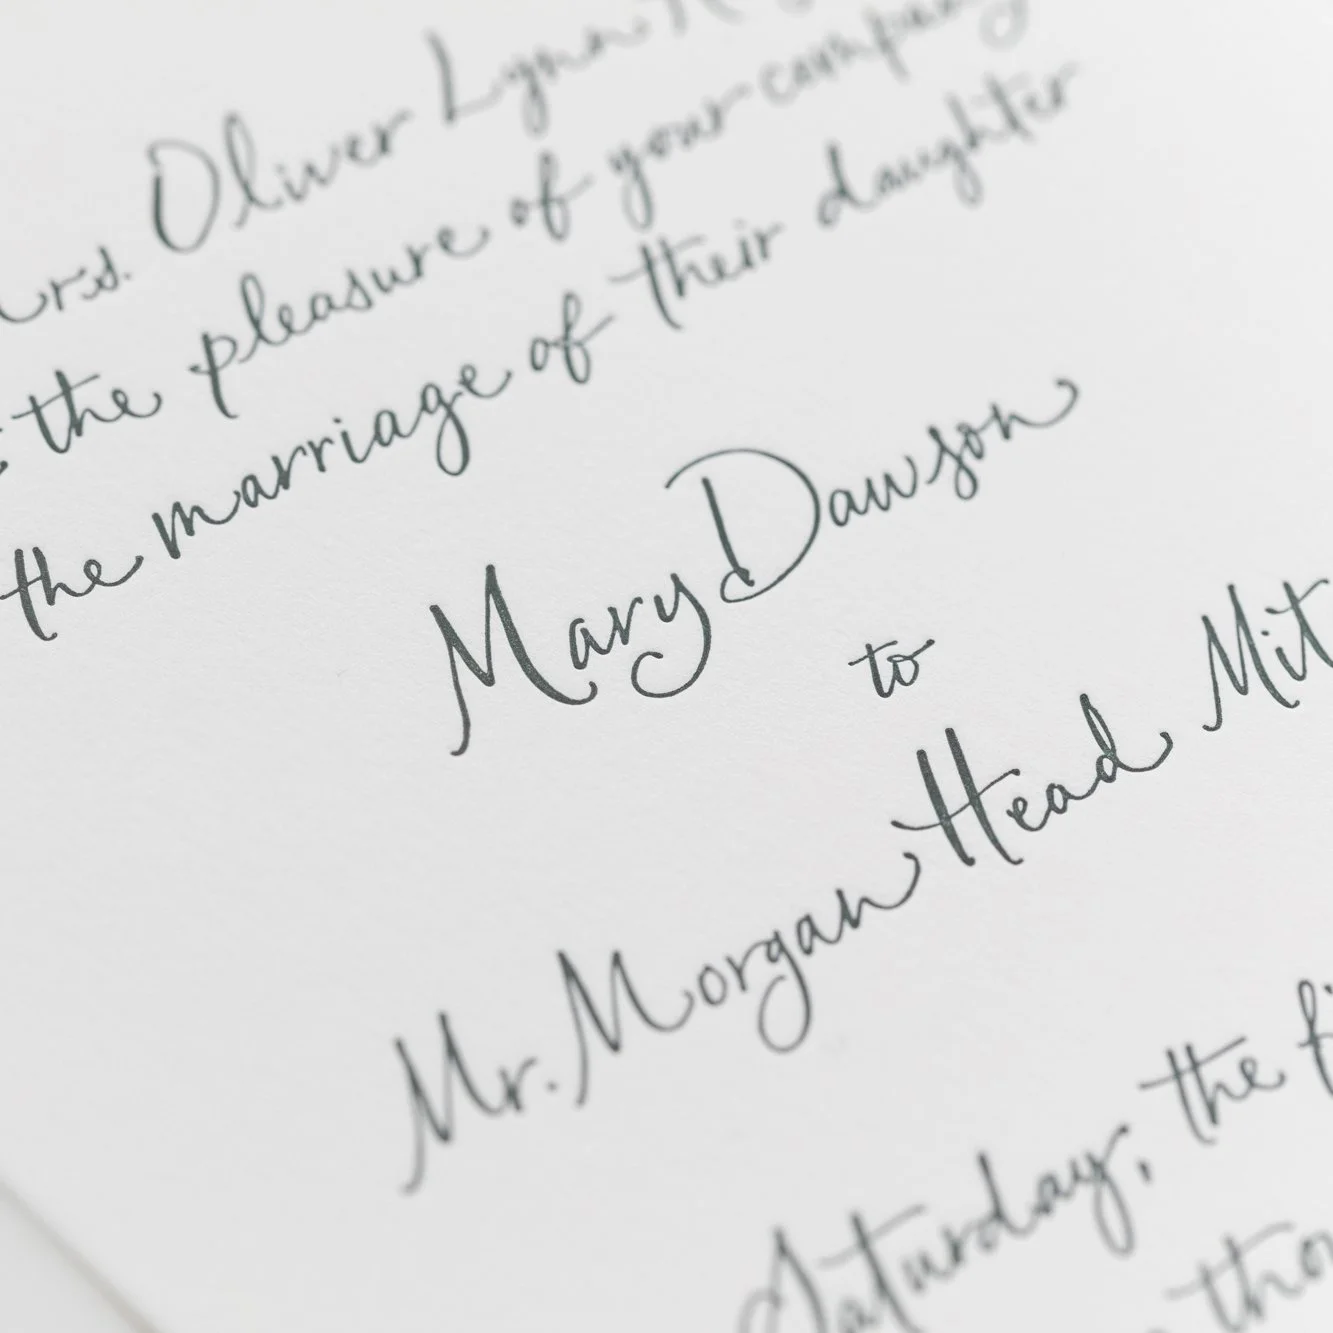 Mrs. Oliver Lynn
the pleasure of your company
the marriage of their daughter
Mary Dawson
to
Mr. Morgan Head Mit
Saturday, the fi
tho